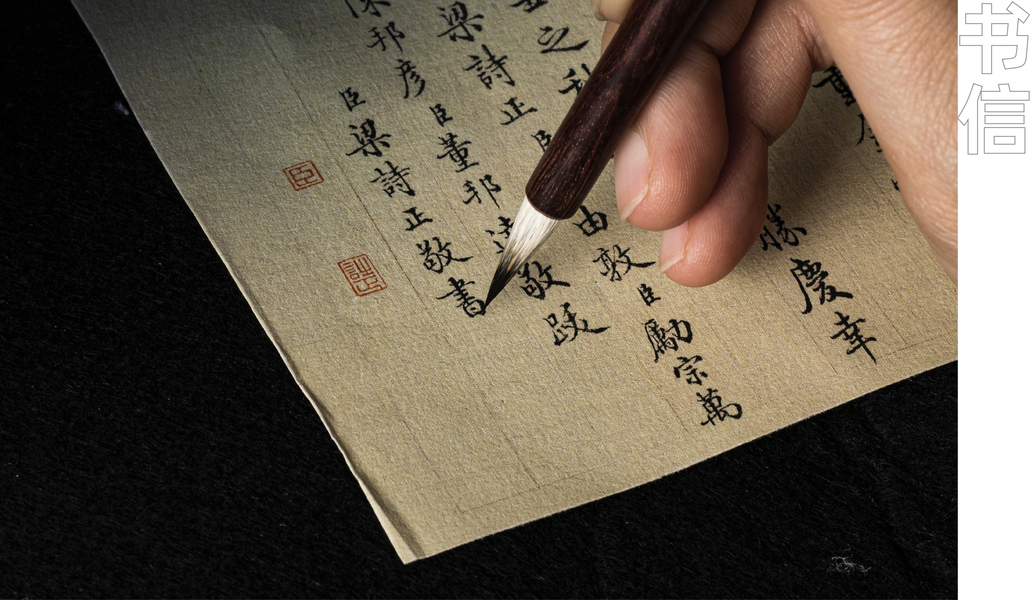 书信
重
之
勝慶幸
梁詩正臣由敦臣勵宗萬
邦彥臣董邦達敬跋
臣梁詩正敬書
臣